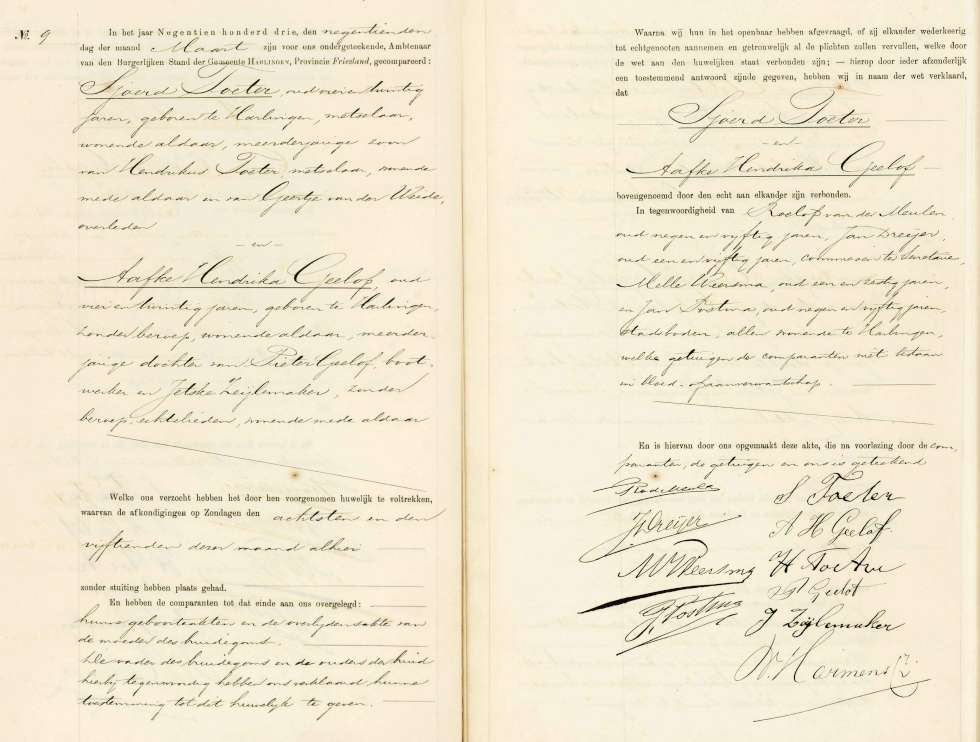 №. 9
In het jaar Negentien honderd drie, den negentienden
dag der maand Maart zijn voor ons ondergeteekende, Ambtenaar
van den Burgerlijken Stand der Gemeente HARLINGEN, Provincie Friesland, gecompareerd:
Sjoerd Toeter, oud vier en twintig
jaren, geboren te Harlingen, metselaar,
wonende aldaar, meerderjarige zoon
van Hendrikus Toeter, metselaar, wonende
mede aldaar en van Geertje van der Weide,
overleden
— en —
Aafke Hendrika Geelof, oud
vier en twintig jaren, geboren te Harlingen,
zonder beroep, wonende aldaar, meerder
jarige dochter van Pieter Geelof, boot-
werker en Jetske Zeijlemaker, zonder
beroep, echtelieden, wonende mede aldaar
Welke ons verzocht hebben het door hen voorgenomen huwelijk te voltrekken,
waarvan de afkondigingen op Zondagen den achtsten en den
vijftienden dezer maand alhier
zonder stuiting hebben plaats gehad.
En hebben de comparanten tot dat einde aan ons overgelegd:
hunne geboorteakten en de overlijdensakte van
de moeder des bruidegoms.
De vader des bruidegoms en de ouders der bruid
hierbij tegenwoordig hebben ons verklaard, hunne
toestemming tot dit huwelijk te geven.
Waarna wij hun in het openbaar hebben afgevraagd, of zij elkander wederkeerig
tot echtgenooten aannemen en getrouwelijk al de plichten zullen vervullen, welke door
de wet aan den huwelijken staat verbonden zijn; — hierop door ieder afzonderlijk
een toestemmend antwoord zijnde gegeven, hebben wij in naam der wet verklaard,
dat
Sjoerd Toeter
— en —
Aafke Hendrika Geelof
bovengenoemd door den echt aan elkander zijn verbonden.
In tegenwoordigheid van Roelof van der Meulen,
oud negen en vijftig jaren, Jan Dreijer,
oud een en vijftig jaren, commiezen ter Secretarie,
Melle Weersma, oud een en zestig jaren,
en Jan Postma, oud negen en vijftig jaren,
stadsboden, allen wonende te Harlingen,
welke getuigen de comparanten niet bestaan
in bloed- of aanverwantschap.
En is hiervan door ons opgemaakt deze akte, die na voorlezing door de com
paranten, de getuigen en ons is geteekend
S Toeter
JDreijer
A H Geelof
MWeersma
H Toeter
P Geelof
J Postma
J Zijlemaker
Harmens